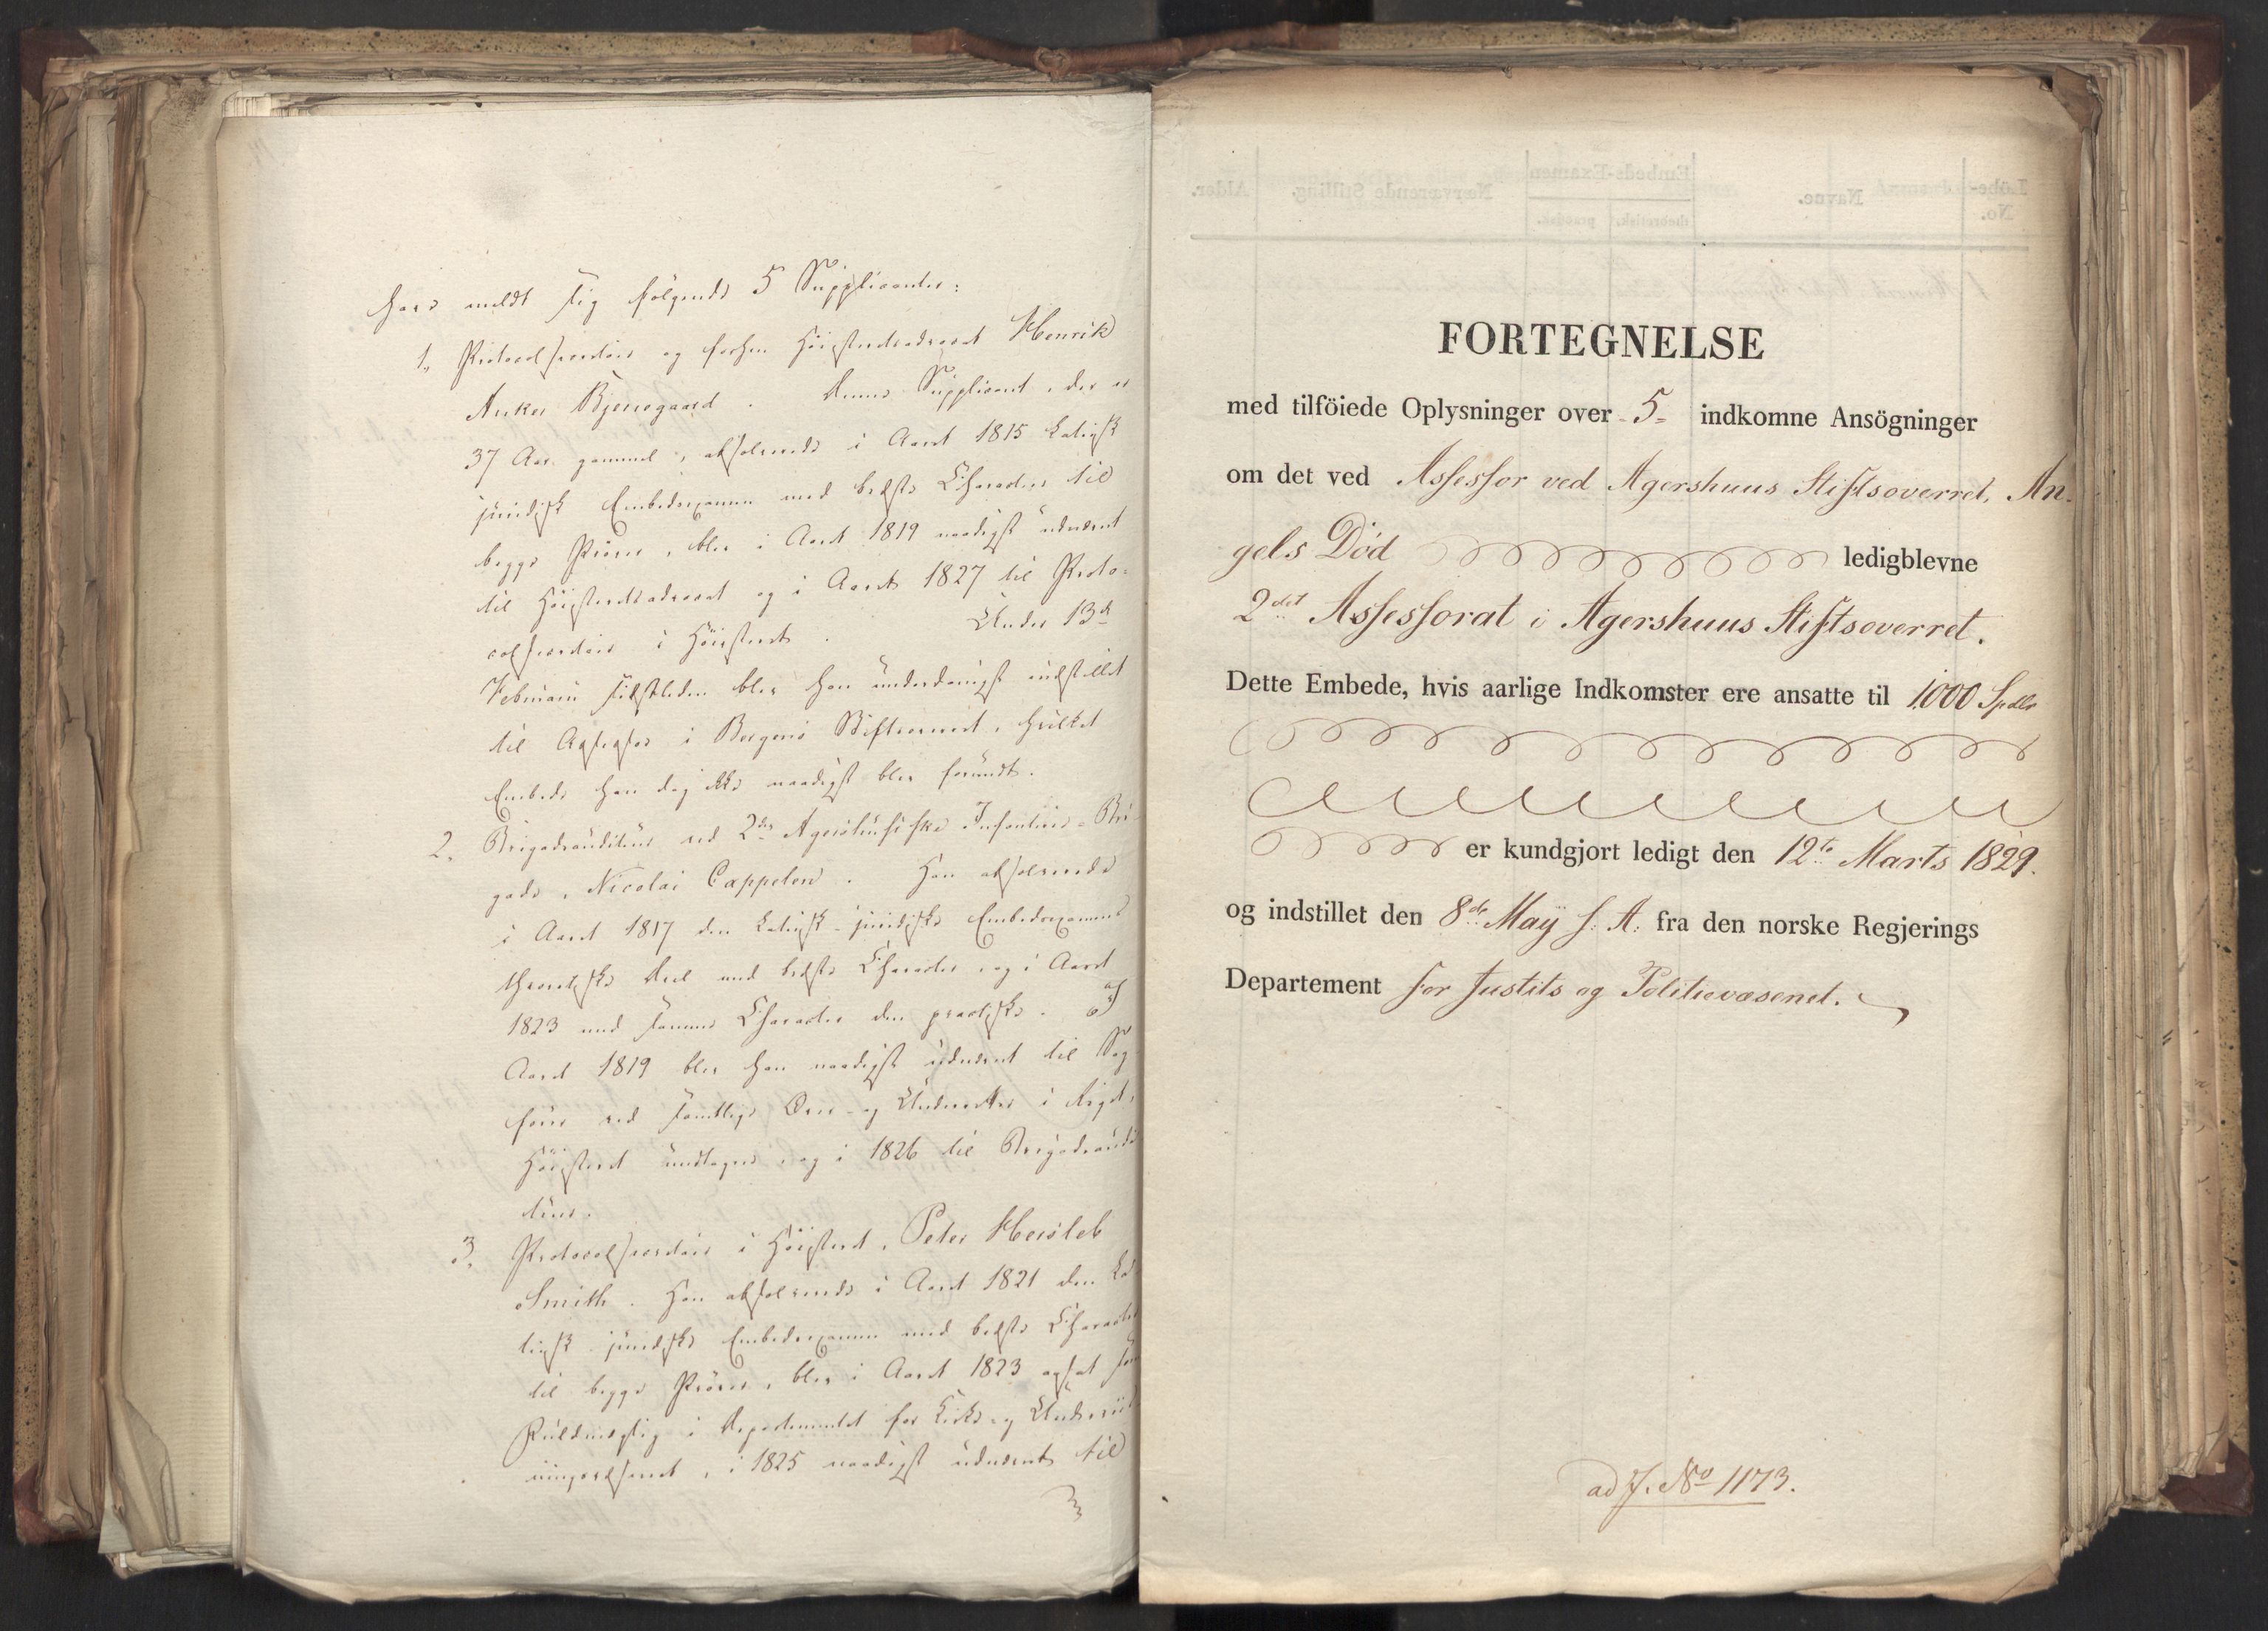 have meldt sig følgende 5 Supplicanter:
1, Protocolsecretair og forhen Höiesteretsadvocat Henrik
Anker Bjerregaard. Denne Supplicant, der er
37 Aar gammel, absolverede i Aaret 1815 Latinsk
juridisk Embedsexamen med bedste Charakter til
begge Prøver, blev i Aaret 1819 naadigst udnævnt
til Höiesteretsadvocat og i Aaret 1827 til Proto-
colsecretair i Höiesteret. Under 13de
Februarii sidstleden blev han underdanigst indstillet
til Assessor i Bergens Stiftsoverret, hvilket
Embede han dog ikke naadigst blev forundt.
2, Brigadeauditeur ved 2den Agershusiske Infanterie-Bri-
gade, Nicolai Cappelen. Han absolverede
i Aaret 1817 den Latinsk-juridiske Embedsexamens
theoretiske Deel med bedste Charakter, og i Aaret
1823 med samme Charakter den practiske. I
Aaret 1819 blev han naadigst udnævnt til Sag-
fører ved samtlige Over- og Underretter i Riget,
Höiesteret undtagen, og i 1826 til Brigadeaudi-
teur.
3, Protocolsecretair i Höiesteret, Peter Hersleb
Smith. Han absolverede i Aaret 1821 den La-
tinsk-juridiske Embedsexamen med bedste Charakter
til begge Prøver, blev i Aaret 1823 ansat som
Fuldmægtig i Departementet for Kirke- og Underviis-
ningsvæsenet, i 1825 naadigst udnævnt til
FORTEGNELSE
med tilföiede Oplysninger over 5 indkomne Ansögninger
om det ved Assessor ved Agershuus Stiftsoverret, An-
gels Död ledigblevne
2det Assessorat i Agershuus Stiftsoverret.
Dette Embede, hvis aarlige Indkomster ere ansatte til 1000 Spdlr
er kundgjort ledigt den 12te Marts 1829.
og indstillet den 8de Maÿ s. A. fra den norske Regjerings
Departement for Justits og Politievæsenet.
ad J. No 1173.